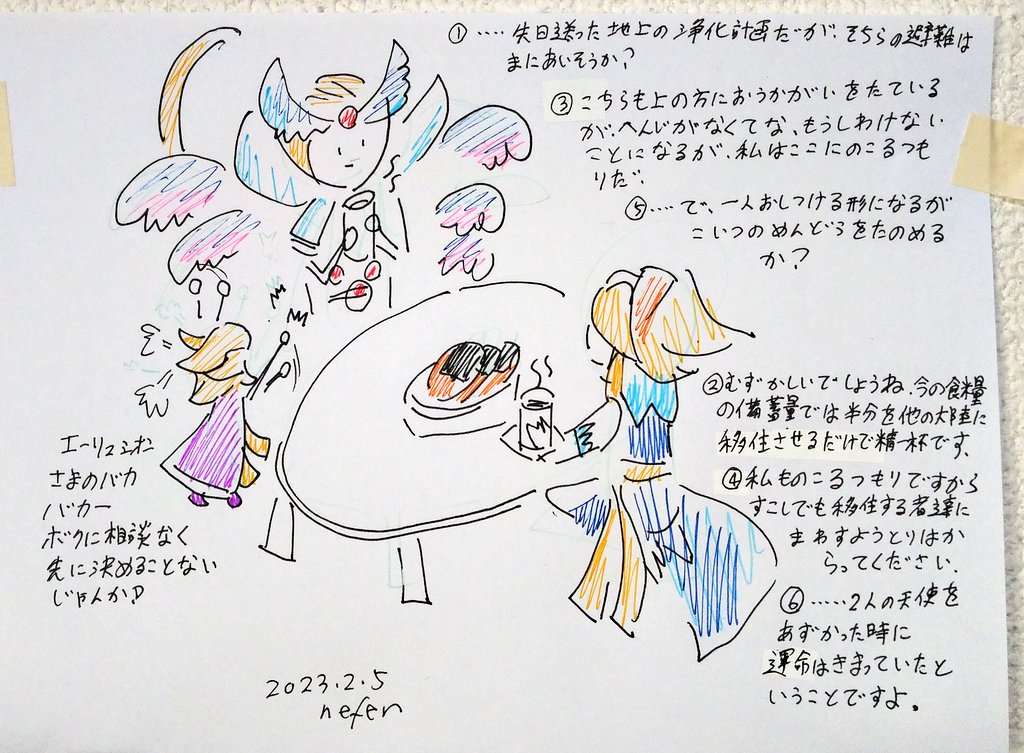 ① ‥‥先日送った地上の浄化計画だが、そちらの避難は
まにあいそうか?
③ こちらも上の方におうかがいをたている
が、へんじがなくてな、もうしわけない
ことになるが、私はここにのこるつも
りだ、
⑤‥‥で、一人おしつける形になるが
こいつのめんどうをたのめる
か?
②むずかしいでしょうね、今の食糧
の備蓄量では半分を他の大陸に
移住させるだけで精一杯です、
④私ものこるつもりですから
すこしでも移住する者達に
まわすようとりはか
らってください、
⑥‥‥2人の天使を
あずかった時に
運命はきまっていたと
いうことですよ。
エーリュシオン
さまのバカ
バカー
ボクに相談なく
先に決めることない
じゃんか?
2023.2.5
nefen